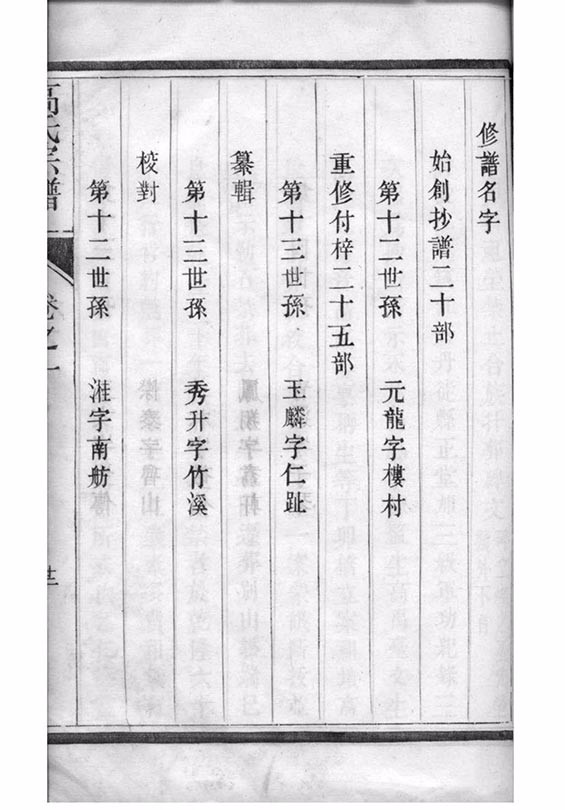 修譜名字
始創抄譜二十部
第十二世孫 元龍字樓村
重修付梓二十五部
第十三世孫 玉麟字仁趾
纂輯
第十三世孫 秀升字竹溪
校對
第十二世孫 漼字南舫
高氏宗譜 卷之一